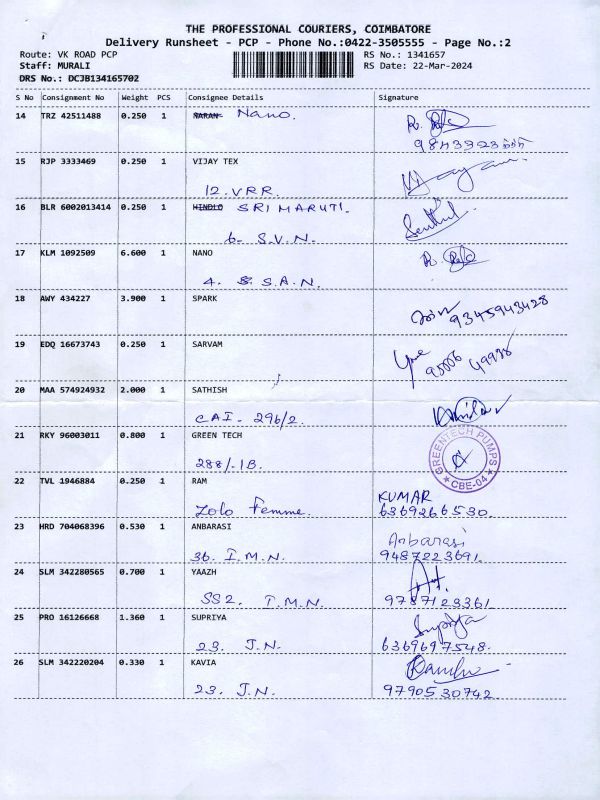 THE PROFESSIONAL COURIERS, COIMBATORE
Delivery Runsheet - PCP - Phone No.:0422-3505555 - Page No.:2
Route: VK ROAD PCP RS No.: 1341657
Staff: MURALI RS Date: 22-Mar-2024
DRS No.: DCJB134165702
S No Consignment No Weight PCS Consignee Details Signature
14 TRZ 42511488 0.250 1 NARAN Nano.
15 RJP 3333469 0.250 1 VIJAY TEX
12. V.R.R.
16 BLR 6002013414 0.250 1 HINDLO SRI MARUTI.
6. S.V.N.
17 KLM 1092509 6.600 1 NANO
4. S.A.N.
18 AWY 434227 3.900 1 SPARK
9345943428
19 EDQ 16673743 0.250 1 SARVAM
20 MAA 574924932 2.000 1 SATHISH
CAI- 296/2.
21 RKY 96003011 0.800 1 GREEN TECH GREENTECH PUMPS
288/-1B. CBE-04
22 TVL 1946884 0.250 1 RAM KUMAR
Zolo Femme. 6369266530.
23 HRD 704068396 0.530 1 ANBARASI Anbarasi
36. I.M.N. 9487223691.
24 SLM 342280565 0.700 1 YAAZH
SS2. T.M.N. 9787123361
25 PRO 16126668 1.360 1 SUPRIYA Supriya
23. J.N. 6369697548.
26 SLM 342220204 0.330 1 KAVIA
23. J.N. 9790530742.